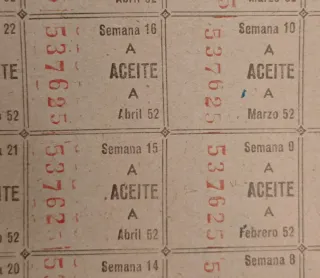 Abril 52
Marzo 52
22
537625
Semana 16
A
ACEITE
A
Abril 52
537625
Semana 10
A
ACEITE
A
Marzo 52
TE
52
21
537625
Semana 15
A
ACEITE
A
Abril 52
537625
Semana 9
A
ACEITE
A
Febrero 52
TE
52
20
Semana 14
Semana 8